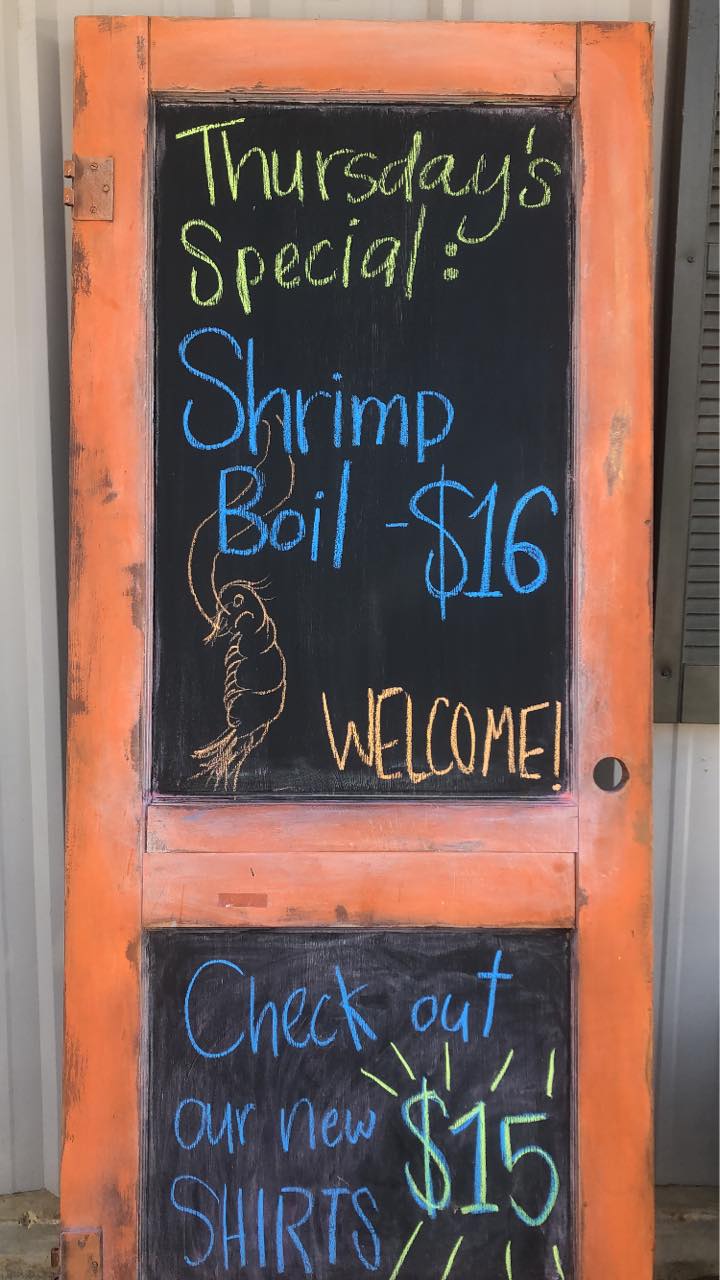 Thursday's
Special:
Shrimp
Boil - $16
WELCOME!
Check out
our new
SHIRTS
$15